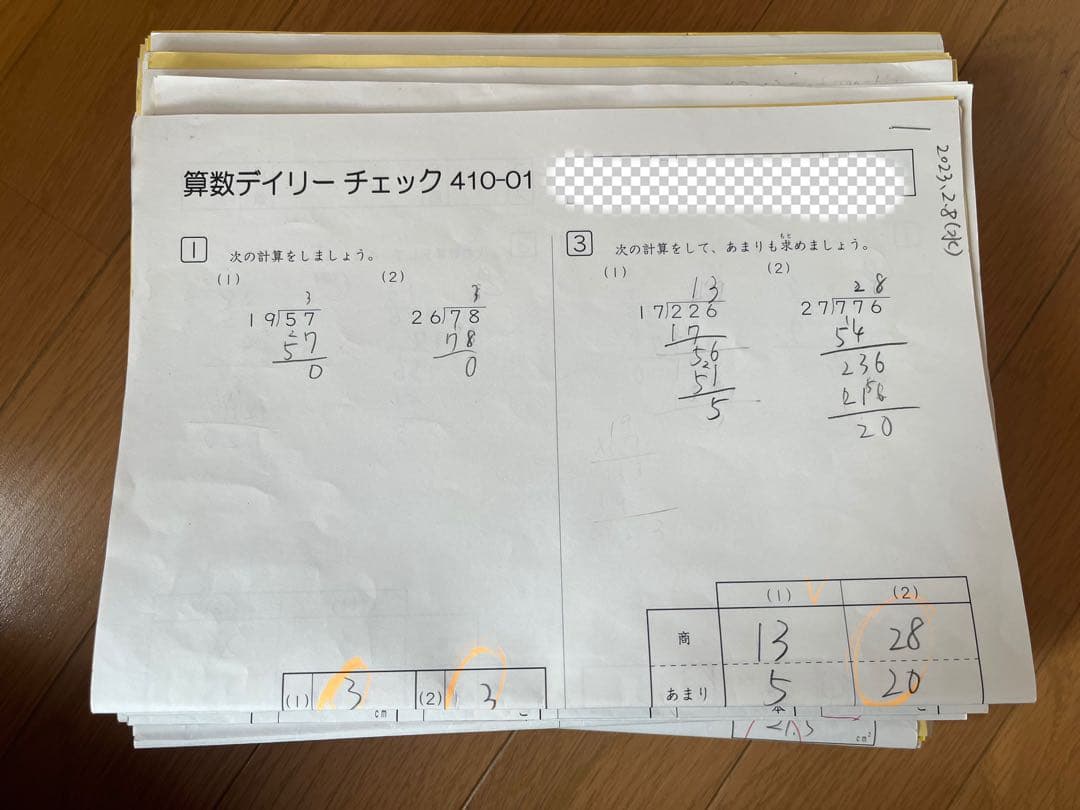 算数デイリーチェック 410-01
2023.2.8(水)
1 次の計算をしましょう。
(1) (2)
3
19)57
57
0
3
26)78
78
0
3 次の計算をして、あまりも求めましょう。
もと
(1) (2)
13
17)226
17
56
2
51
5
28
27)776
54
236
216
20
(1) 3 (2) 3
cm
(1) (2)
商 13 28
あまり 5 20
cm²